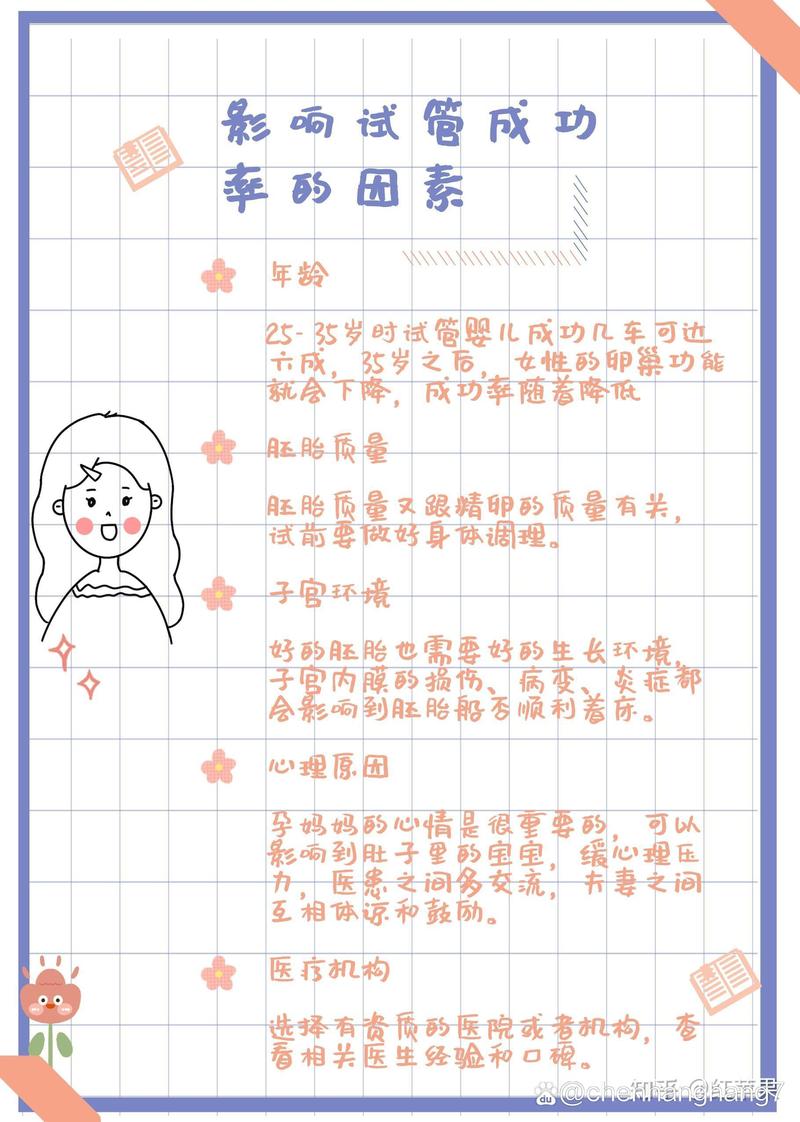 影响试管成功
率的因素
年龄
25-35岁时试管婴儿成功几车可达
六成，35岁之后，女性的卵巢功能
就会下降，成功率随着降低
胚胎质量
胚胎质量又跟精卵的质量有关，
试前要做好身体调理。
子宫环境
好的胚胎也需要好的生长环境，
子宫内膜的损伤、病变、炎症都
会影响到胚胎能否顺利着床。
心理原因
孕妈妈的心情是很重要的，可以
影响到肚子里的宝宝，缓心理压
力，医患之间多交流，夫妻之间
互相体谅和鼓励。
医疗机构
选择有资质的医院或者机构，查
看相关医生经验和口碑。
@chenhanghang7